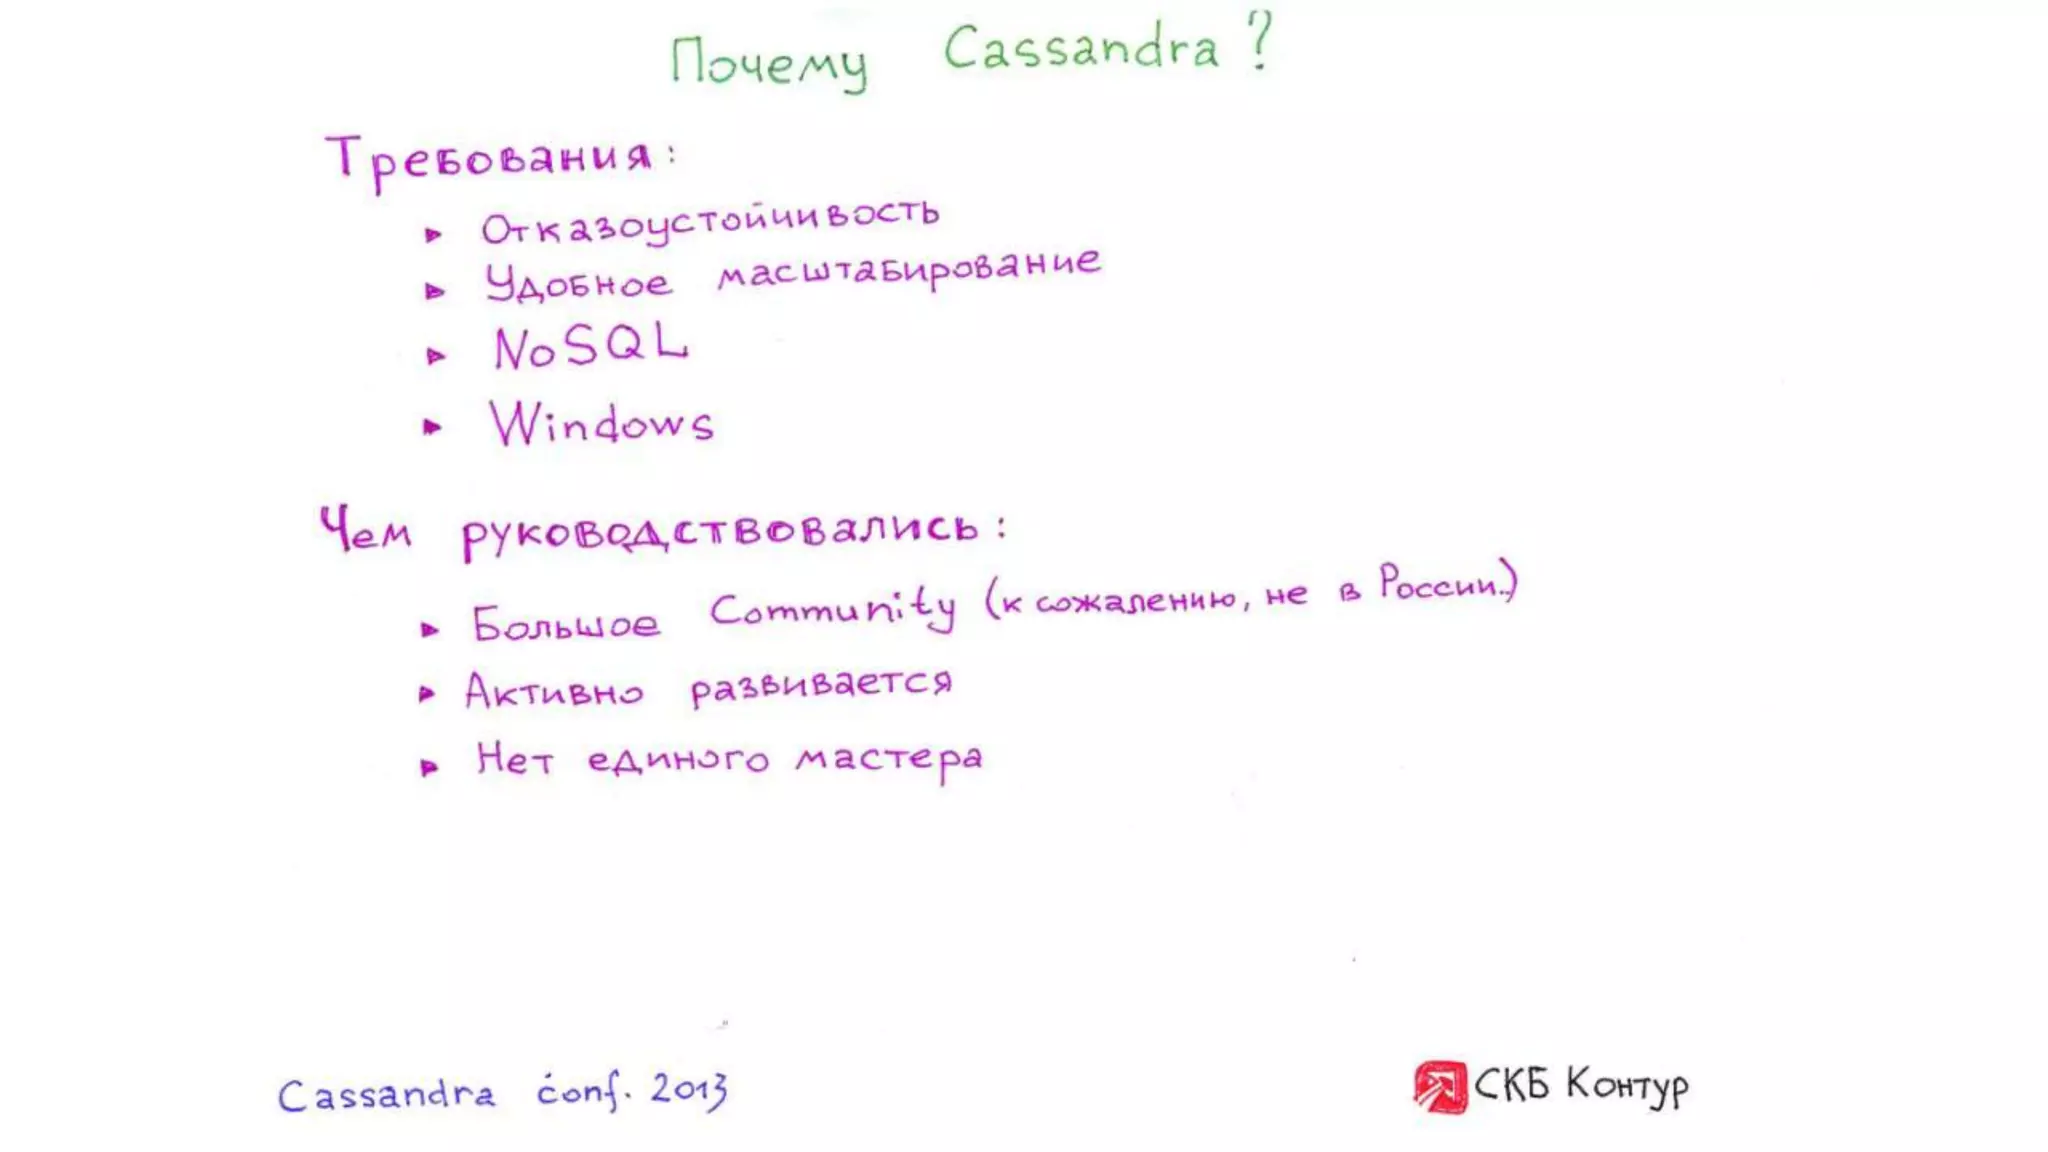 Почему Cassandra?
Требования:
Отказоустойчивость
Удобное масштабирование
NoSQL
Windows
Чем руководствовались:
Большое Community (к сожалению, не в России.)
Активно развивается
Нет единого мастера
Cassandra conf. 2013
СКБ Контур